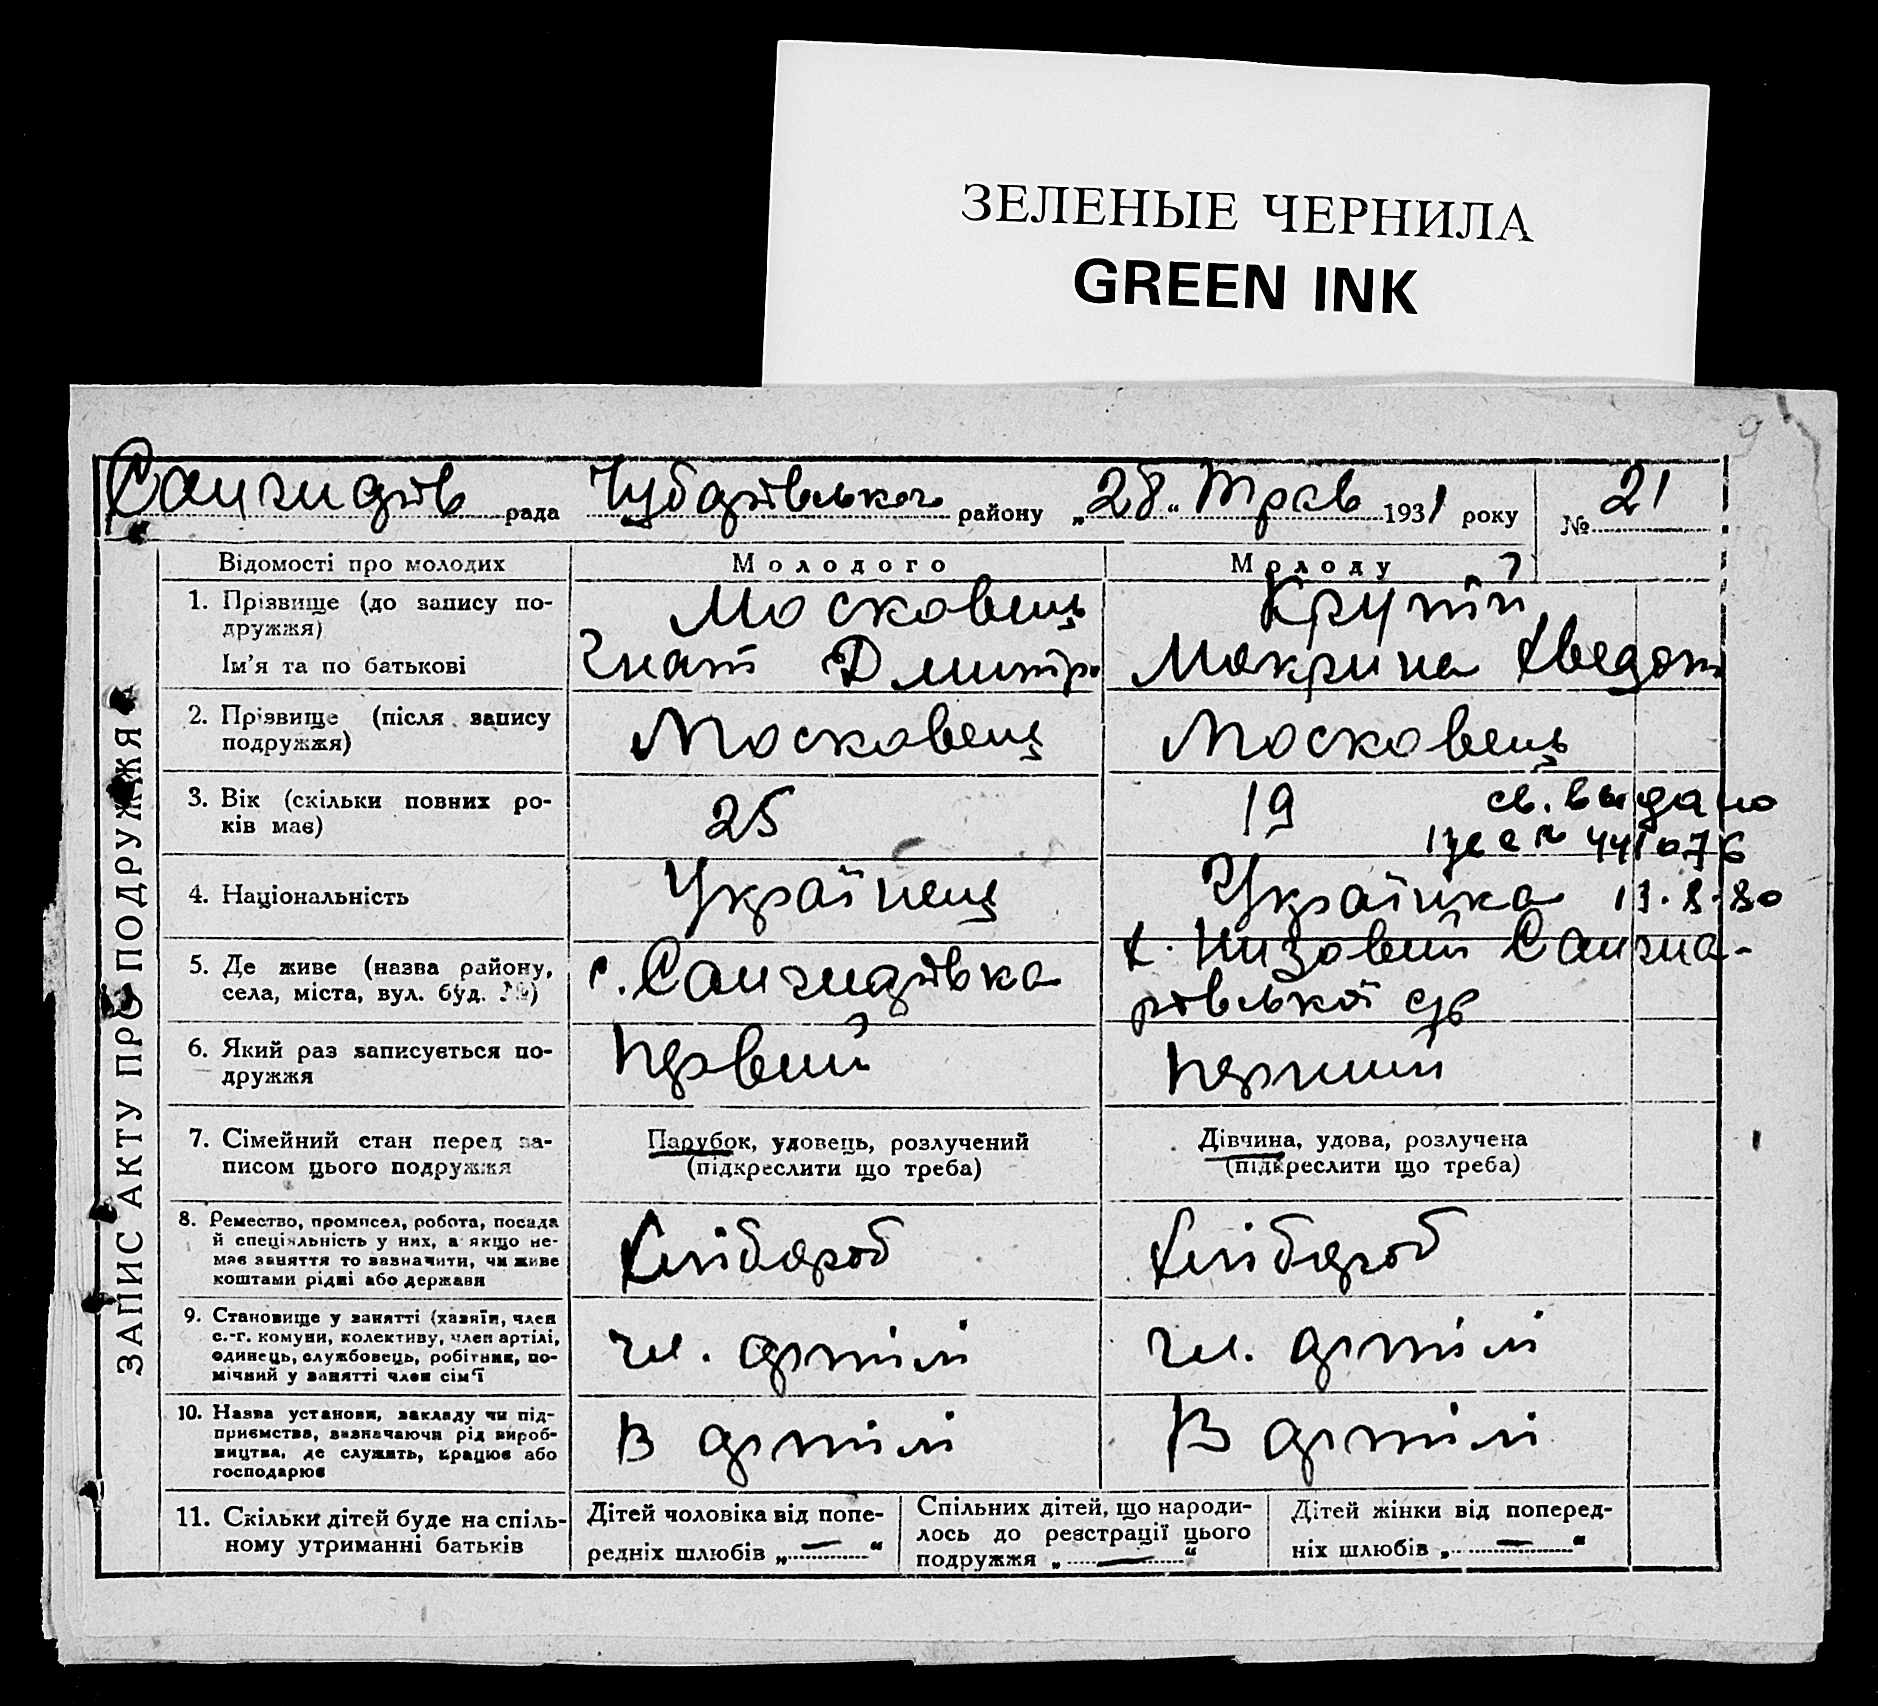 ЗЕЛЕНЫЕ ЧЕРНИЛА
GREEN INK
9
рада Чубарівського району „28“ Трав 1931 року № 21
ЗАПИС АКТУ ПРО ПОДРУЖЖЯ
Відомості про молодих
Молодого
Молоду
1. Прізвище (до запису по-
дружжя)
Ім'я та по батькові
Московець
Гнат Дмитр
Макрина
2. Прізвище (після запису
подружжя)
Московець
Московець
3. Вік (скільки повних ро-
ків має)
25
19
св. выдано
441076
13.8.80
4. Національність
Українець
Українка
5. Де живе (назва району,
села, міста, вул. буд. №)
с.
х. Низовий
6. Який раз записується по-
дружжя
Первий
Перший
7. Сімейний стан перед за-
писом цього подружжя
Парубок, удовець, розлучений
(підкреслити що треба)
Дівчина, удова, розлучена
(підкреслити що треба)
8. Ремество, промисел, робота, посада
й спеціяльність у них, а якщо не-
має заняття то зазначити, чи живе
коштами рідні або держави
Хлібороб
Хлібороб
9. Становище у занятті (хазяїн, член
с.-г. комуни, колективу, член артілі,
одинець, службовець, робітник, по-
мічний у занятті член сім'ї
чл. артілі
чл. артілі
10. Назва установи, закладу чи під-
приємства, зазначаючи рід вироб-
ництва, де служить, працює або
господарює
В артілі
В артілі
11. Скільки дітей буде на спіль-
ному утриманні батьків
Дітей чоловіка від попе-
редніх шлюбів „—“
Спільних дітей, що народи-
лось до реєстрації цього
подружжя „—“
Дітей жінки від поперед-
ніх шлюбів „—“